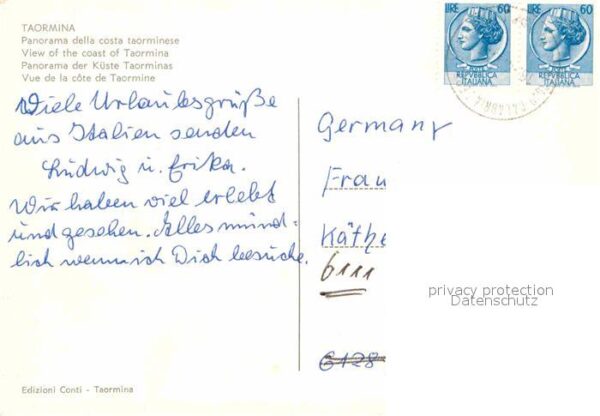 TAORMINA
Panorama della costa taorminese
View of the coast of Taormina
Panorama der Küste Taorminas
Vue de la côte de Taormine
Viele Urlaubsgrüße
aus Italien senden
Ludwig u. Erika.
Wir haben viel erlebt
und gesehen. Alles münd-
lich wenn ich Dich besuche.
Edizioni Conti - Taormina
LIRE 60
POSTE
REPUBBLICA
ITALIANA
60
POSTE
REPUBBLICA
ITALIANA
CALABRIA
Germany
Frau
Käthe
6111
privacy protection
Datenschutz
6128